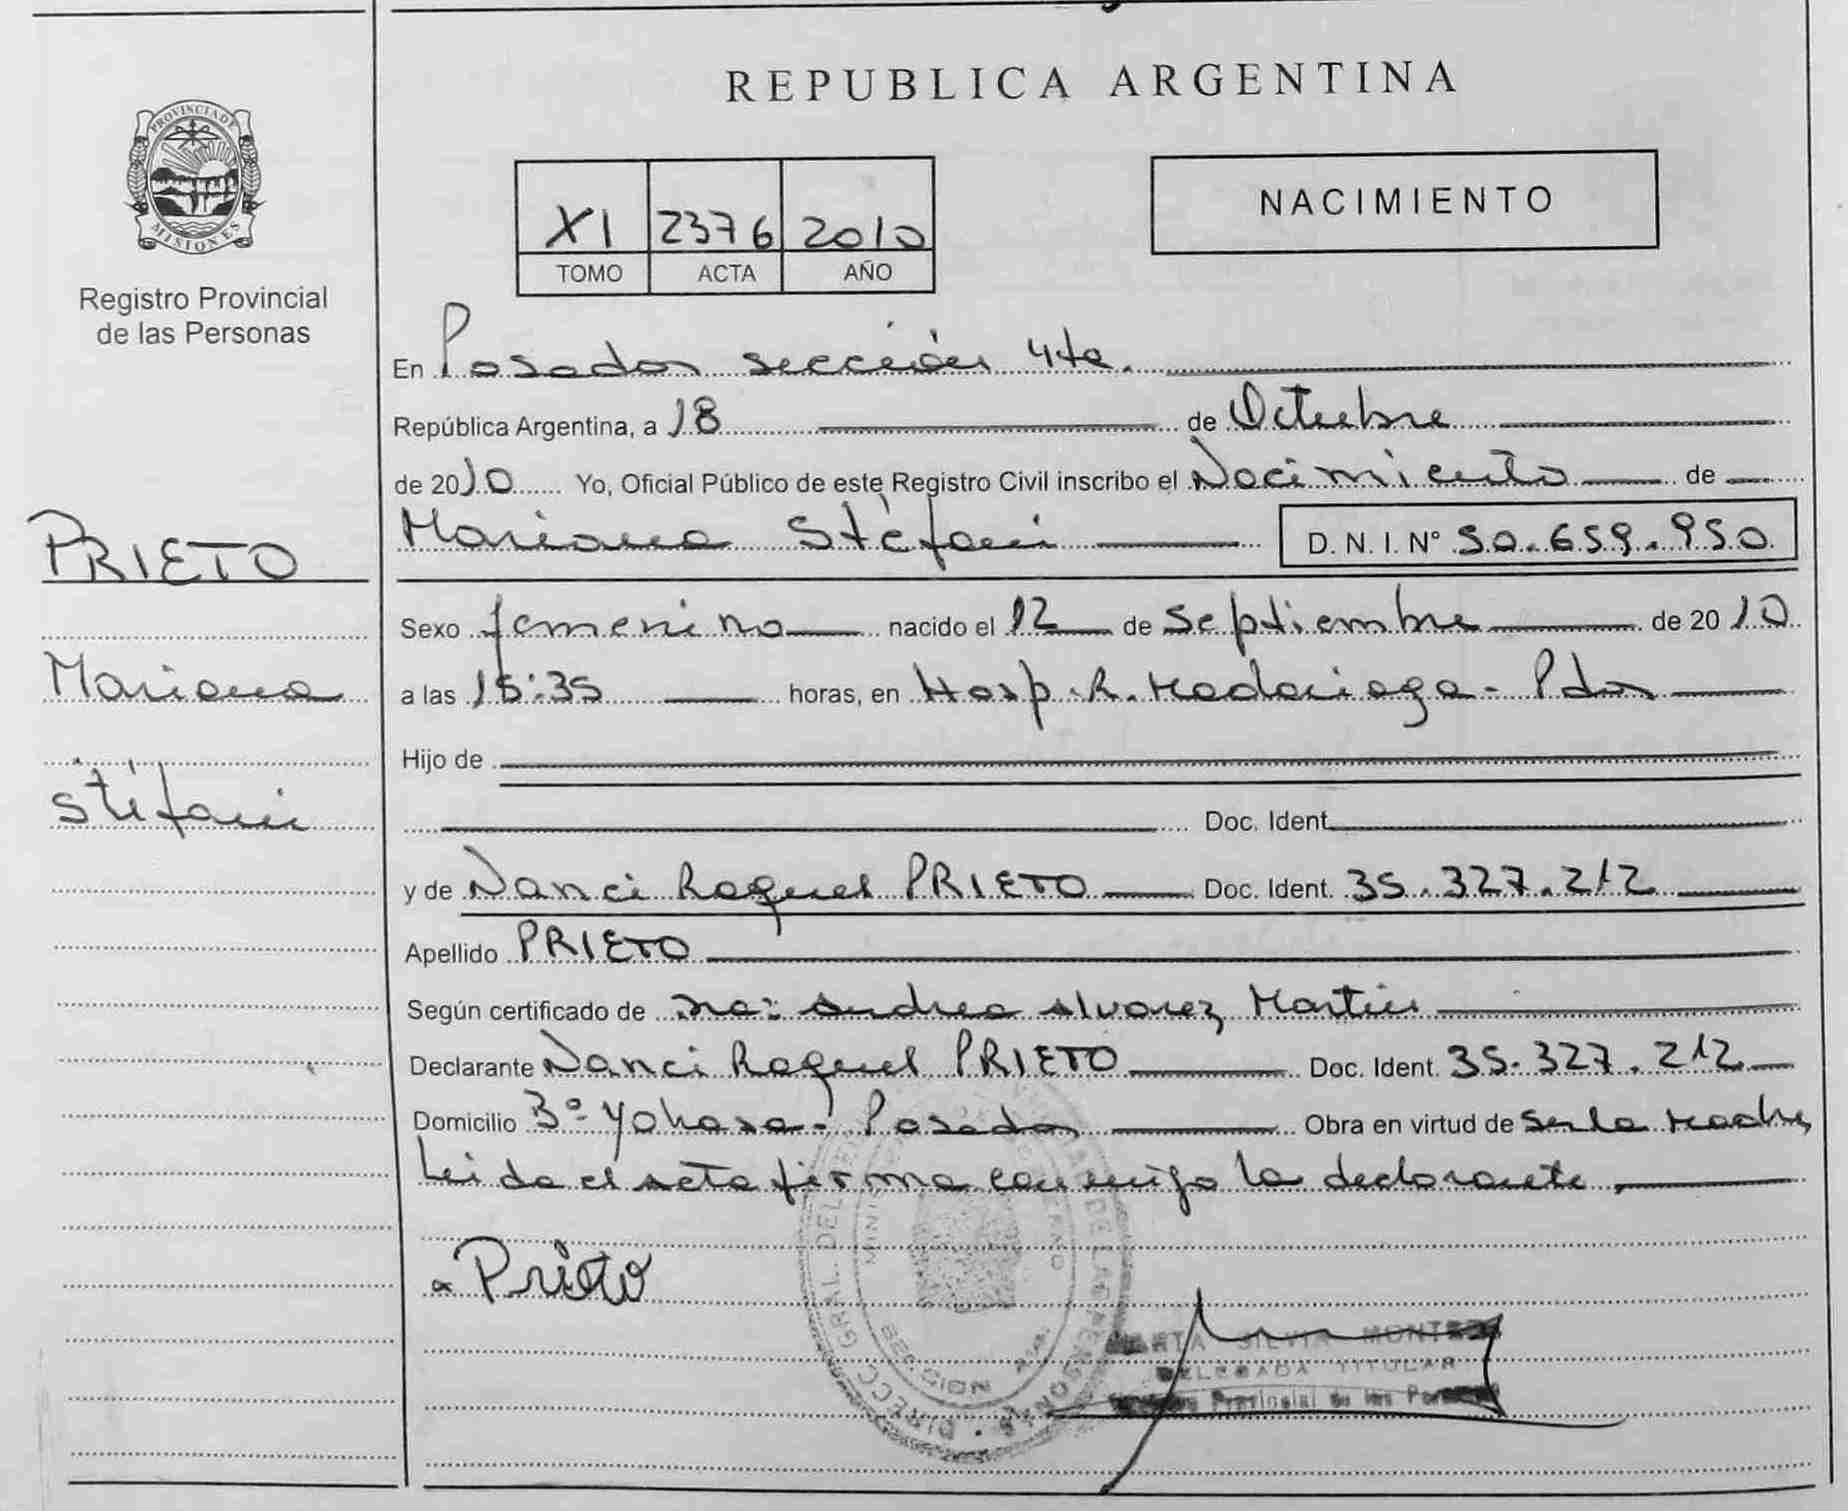 REPUBLICA ARGENTINA
PROVINCIA DE
MISIONES
Registro Provincial
de las Personas
XI 2376 2010
TOMO ACTA AÑO
NACIMIENTO
En Posadas sección 4ta.
República Argentina, a 18 de Octubre
de 2010 Yo, Oficial Público de este Registro Civil inscribo el Nacimiento de
Mariana Stéfani D. N. I. N° 50.659.950
PRIETO
Mariana
Stéfani
Sexo femenino nacido el 12 de Septiembre de 2010
a las 15:35 horas, en Hosp. R. Madariaga - Pdas
Hijo de
Doc. Ident.
y de Nanci Raquel PRIETO Doc. Ident. 35.327.212
Apellido PRIETO
Según certificado de Andrea Alvarez Martin
Declarante Nanci Raquel PRIETO Doc. Ident. 35.327.212
Domicilio B° Yohasa - Posadas Obra en virtud de Ser la Madre
Leida el acta firma conmigo la declarante.
Prieto
MARTA SILVIA
DELEGADA TITULAR
Provincial de las
DIRECC. GRAL. DEL DE LAS PERSONAS